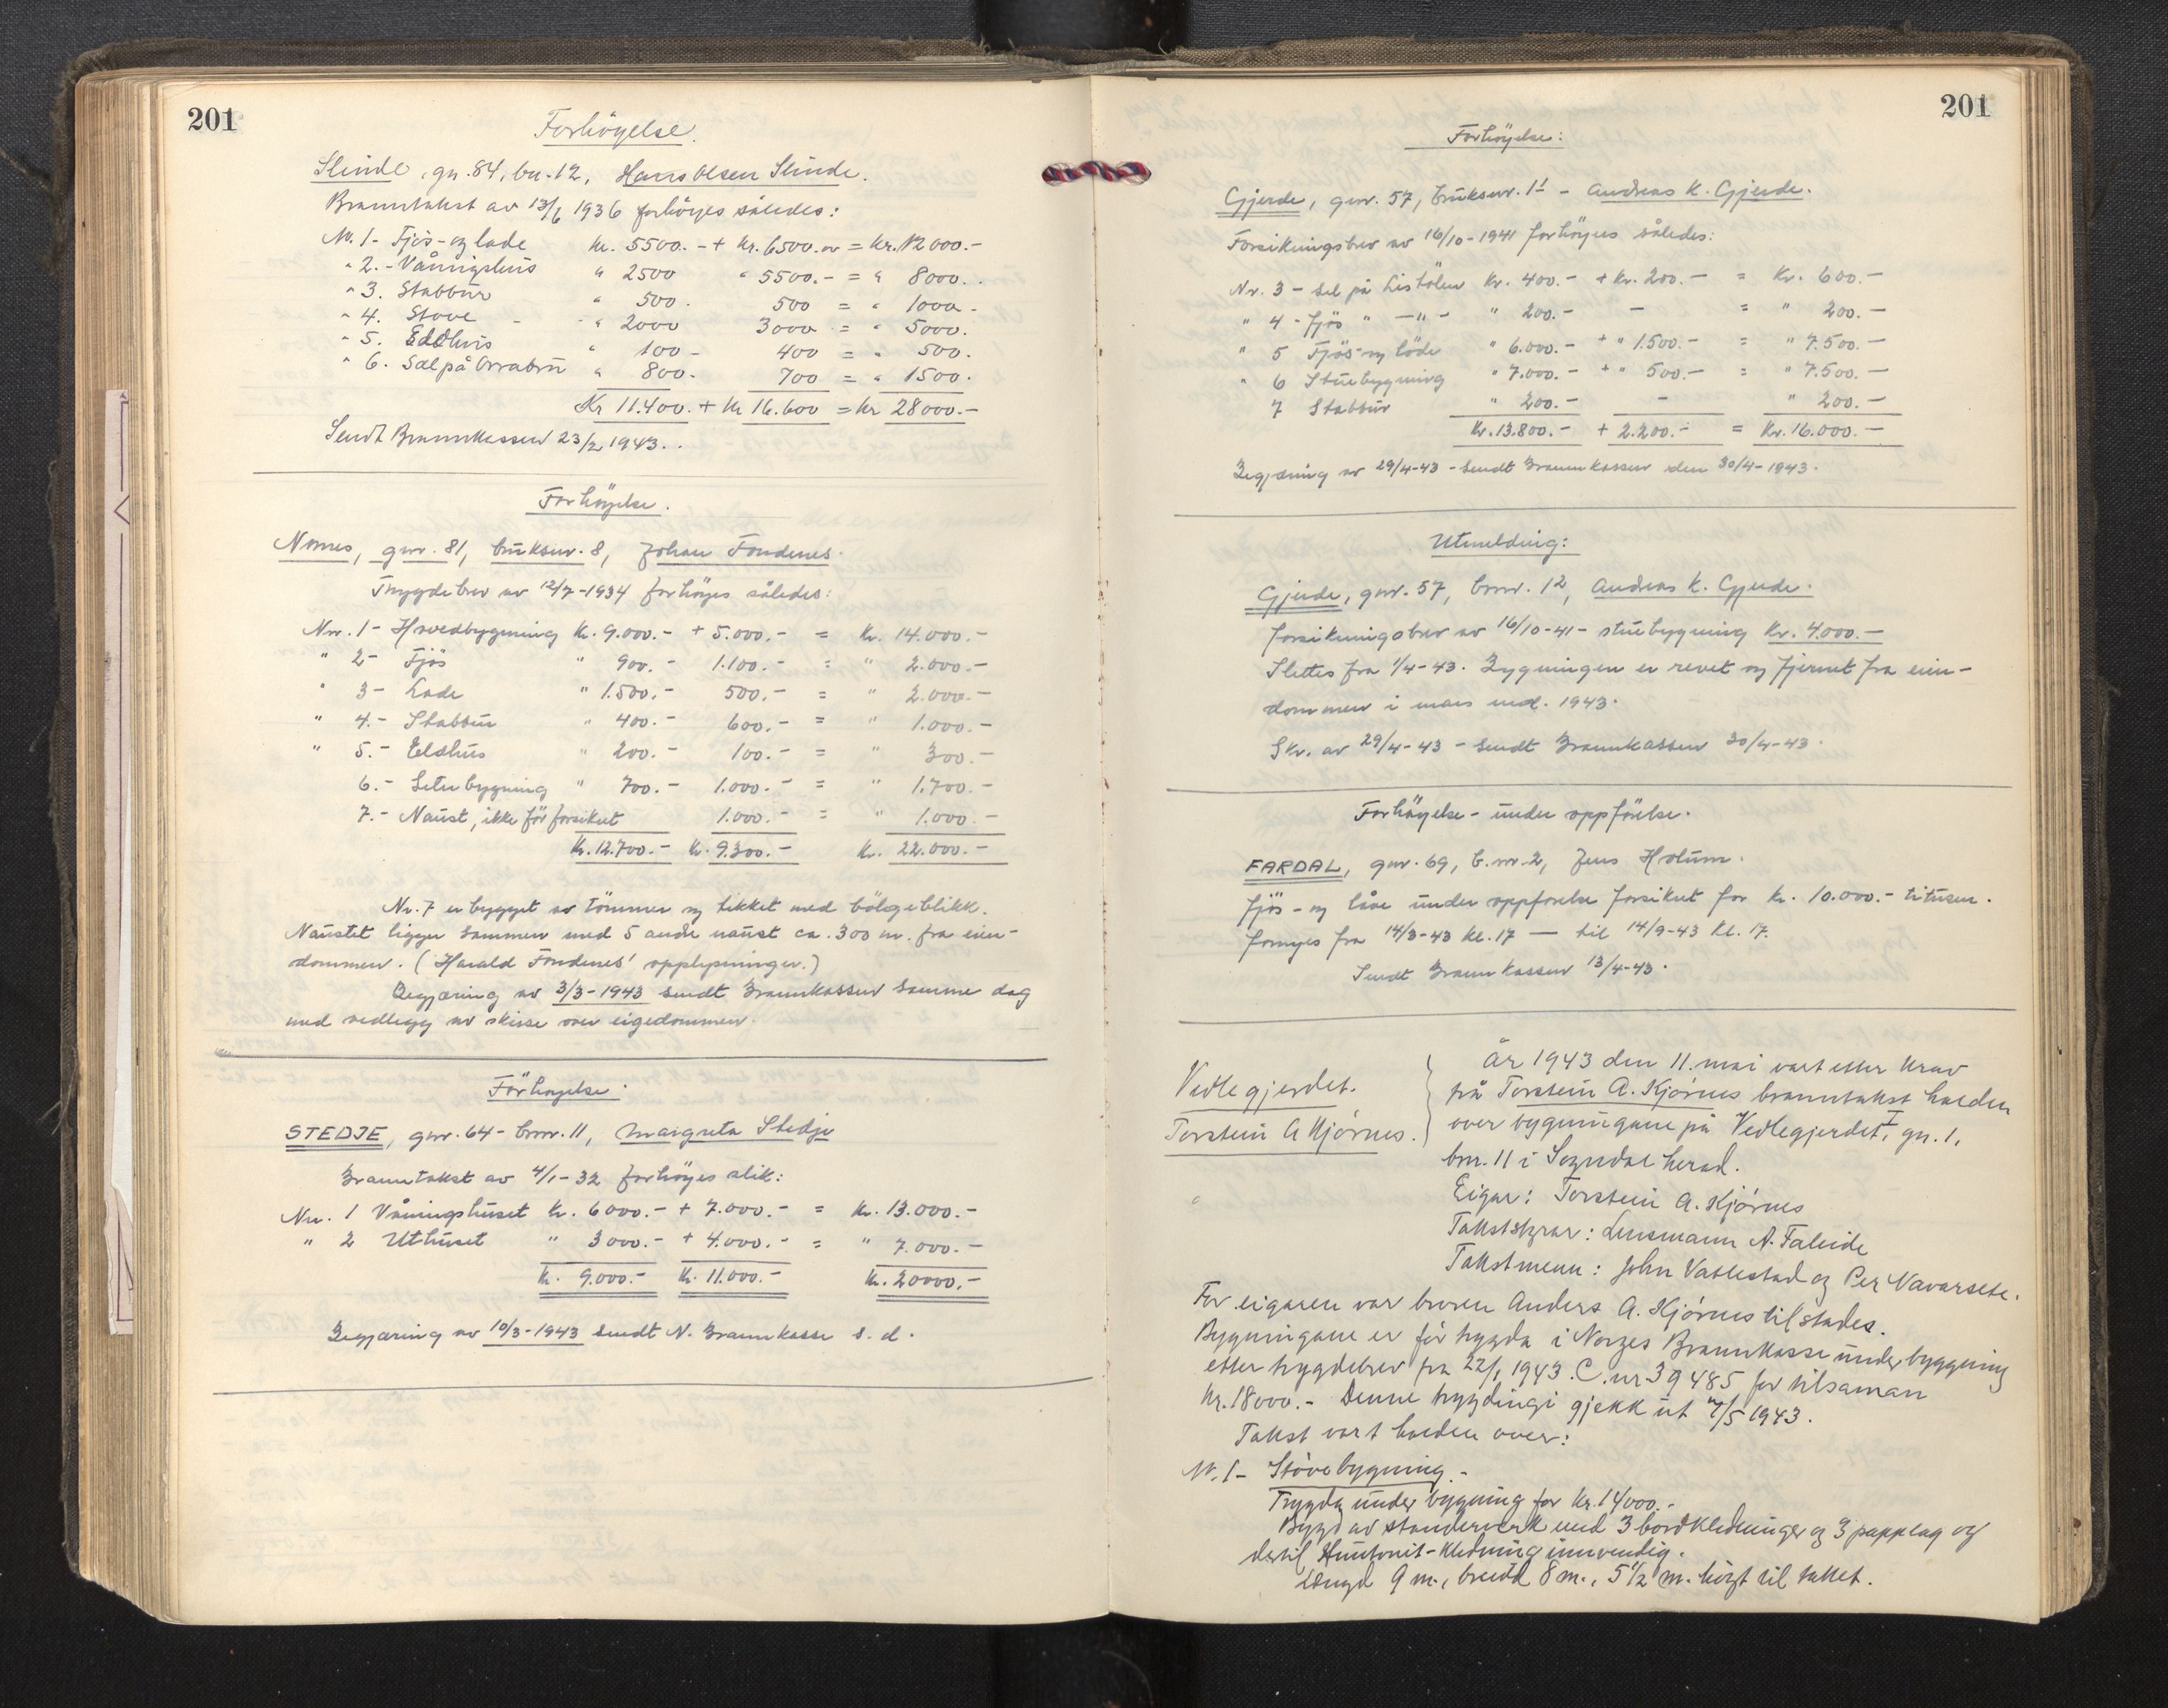 201
Forhöyelse.
Slinde, gn. 84, bn. 12, Hans Olsen Slinde.
Branntakst av 13/6 1936 forhöyes således:
Nr. 1- Fjös- og lade kr. 5500.- + kr. 6500.- = kr. 12000.-
" 2.- Våningshus " 2500 " 5500.- = " 8000.
" 3. Stabbur " 500. 500 = " 1000.-
" 4. Stove - " 2000 3000 = " 5000.
" 5. Eldhus " 100- 400 = " 500.
" 6. Sæl på Orrabu " 800. 700 = " 1500.
Kr 11.400. + kr 16.600 = kr 28000.-
Sendt Brannkassen 23/2 1943.
Forhöyelse.
Nornes, gnr. 81, bruksnr. 8, Johan Fondenes.
Trygdebrev av 12/7-1934 forhöyes således:
Nr. 1- Hovedbygning Kr. 9.000.- + 5.000.- = Kr. 14.000.-
" 2- Fjös " 900.- 1.100.- = " 2.000.-
" 3- Lade " 1.500.- 500.- = " 2.000.-
" 4.- Stabbur " 400.- 600.- = " 1.000.-
" 5.- Eldhus " 200.- 100.- = " 300.-
6.- Seterbygning " 700.- 1.000.- = " 1.700.-
7.- Naust, ikke för forsikret 1.000.- = " 1.000.-
Kr. 12.700.- Kr. 9.300.- Kr. 22.000.-
Nr. 7 er bygget av tömmer og tekket med bölgeblikk.
Naustet ligger sammen med 5 andre naust ca. 300 m. fra eien-
dommen. (Harald Fondenes' opplysninger.)
Begjæring av 3/3-1943 sendt Brannkassen samme dag
med vedlegg av skisse over eigedommen.
Förhöyelse:
STEDJE, gnr. 64- bnr. 11, Margreta Stedje
Branntakst av 4/1-32 forhöyes slik:
Nr. 1 Våningshuset Kr. 6000.- + 7.000.- = Kr. 13.000.-
" 2 Uthuset " 3000.- + 4.000.- = " 7.000.-
Kr. 9.000.- Kr. 11.000.- Kr. 20000.-
Begjæring av 10/3-1943 sendt N. Brannkasse s. d.
201
Forhöyelse:
Gjerde, gnr. 57, bruksnr. 11 - Andreas K. Gjerde.
Forsikringsbrev av 16/10-1941 forhöyes således:
Nr. 3 - Sel på Listölen Kr. 400.- + Kr. 200.- = Kr. 600.-
" 4 - Fjös " -"- " 200.- - = " 200.-
" 5 Fjös- og löde " 6.000.- + " 1.500.- = " 7.500.-
" 6 Stuebygning " 7.000.- + " 500.- = " 7.500.-
7 Stabbur " 200.- - " 200.-
Kr. 13.800.- + 2.200.- = Kr. 16.000.-
Begjæring av 29/4-43 - sendt Brannkassen den 30/4-1943.
Utmelding:
Gjerde, gnr. 57, bnr. 12, Andreas K. Gjerde.
Forsikringsbrev av 16/10-41- stuebygning Kr. 4.000.-
Slettes fra 1/4-43. Bygningen er revet og fjernet fra eien-
dommen i mars md. 1943.
Skr. av 29/4-43 - sendt Brannkassen 30/4-43.
Forhöyelse - under oppförelse.
FARDAL, gnr. 69, b.nr. 2, Jens Holum.
Fjös- og låve under oppförelse forsikret for kr. 10.000.- titusen.
fornyes fra 14/3-43 kl. 17 — til 14/9-43 kl. 17.
Sendt Brannkassen 13/4-43.
Vedlegjerdet.
Torstein A Kjörnes.
År 1943 den 11. mai vart etter krav
frå Torstein A. Kjörnes branntakst halden
over bygningane på Vedlegjerdet I, gn. 1,
bnr. 11 i Sogndal herad.
Eigar: Torstein A. Kjörnes
Takstskrar: Lensmann A. Faleide
Takstmenn: John Vatlestad og Per Navarsete.
For eigaren var broren Anders A. Kjörnes tilstades.
Bygningane er för trygda i Norges Brannkasse under byggning
etter trygdebrev frå 22/1 1943. C. nr 39485 for tilsaman
kr. 18000.- Denne trygdingi gjekk ut 4/5 1943.
Takst vart halden over:
Nr. 1- Stövebygning.-
Trygda under bygning for kr. 14000.-
Bygd av standerverk med 3 bordkledninger og 3 papplag og
dertil Huntonit-kledning innvendig.
Lengd 9 m., breidd 8 m., 5 1/2 m. högt til taket.